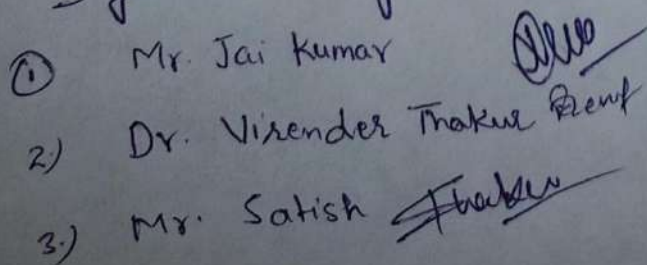 ① Mr. Jai Kumar
2.) Dr. Virender Thakur
3.) Mr. Satish Thakur